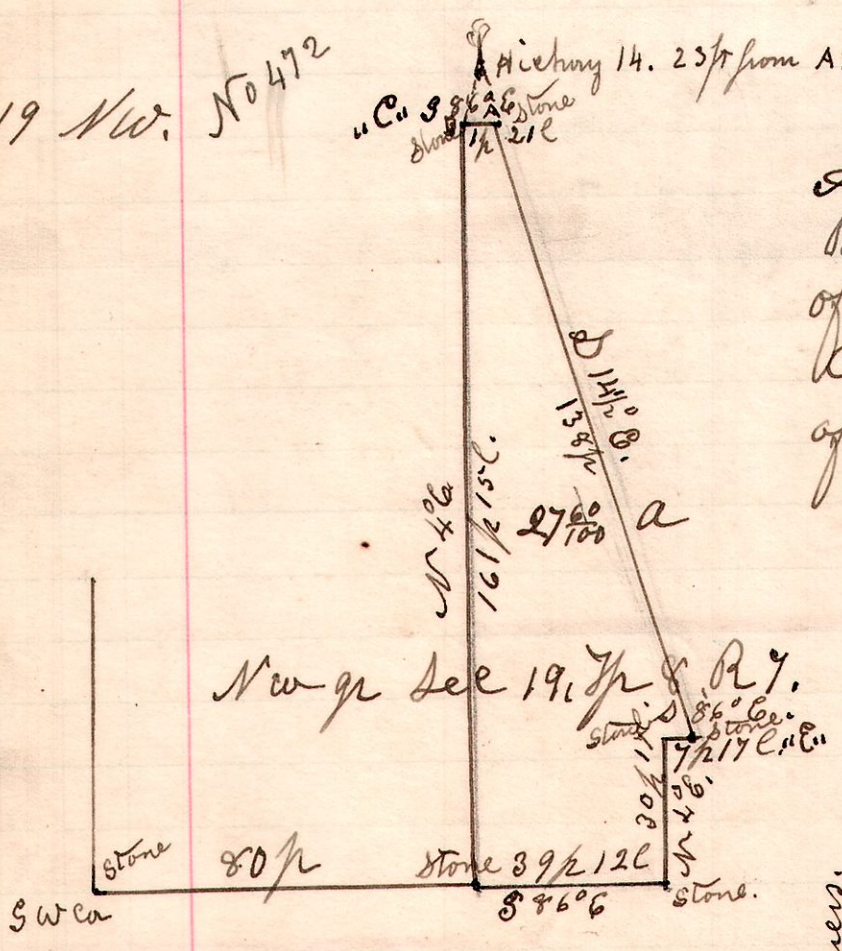 19 NW. No 472
Hickory 14. 23ft from A
"C" S 86° E Stone
Stone 1p 21l
S 14½° E.
138p
N 4° E
161p 15l.
27 60/100 a
of
of
Nw qr Sec 19, Tp 8, R 7.
Stone S 86° E.
Stone
7p 17l "E"
30p
N 4° E.
Stone 80p Stone 39p 12l
S W Cor S 86° E Stone.